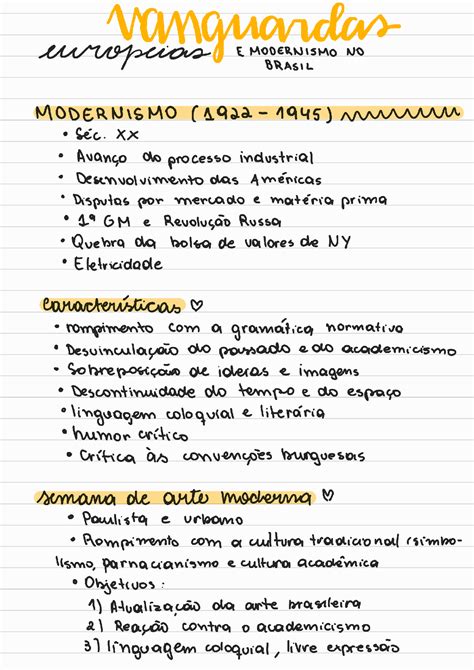 vanguardas
europeias E MODERNISMO NO
BRASIL
MODERNISMO (1922 - 1945)
• Séc. XX
• Avanço do processo industrial
• Desenvolvimento das Américas
• Disputas por mercado e matéria prima
• 1ª GM e Revolução Russa
• Quebra da bolsa de valores de NY
• Eletricidade
características ♡
• rompimento com a gramática normativa
• Desvinculação do passado e do academicismo
• Sobreposição de ideias e imagens
• Descontinuidade do tempo e do espaço
• linguagem coloquial e literária
• humor crítico
• Crítica às convenções burguesas
semana de arte moderna ♡
• Paulista e urbano
• Rompimento com a cultura tradicional (simbo-
lismo, parnacianismo e cultura acadêmica
• Objetivos:
1) Atualização da arte brasileira
2) Reação contra o academicismo
3) linguagem coloquial, livre expressão